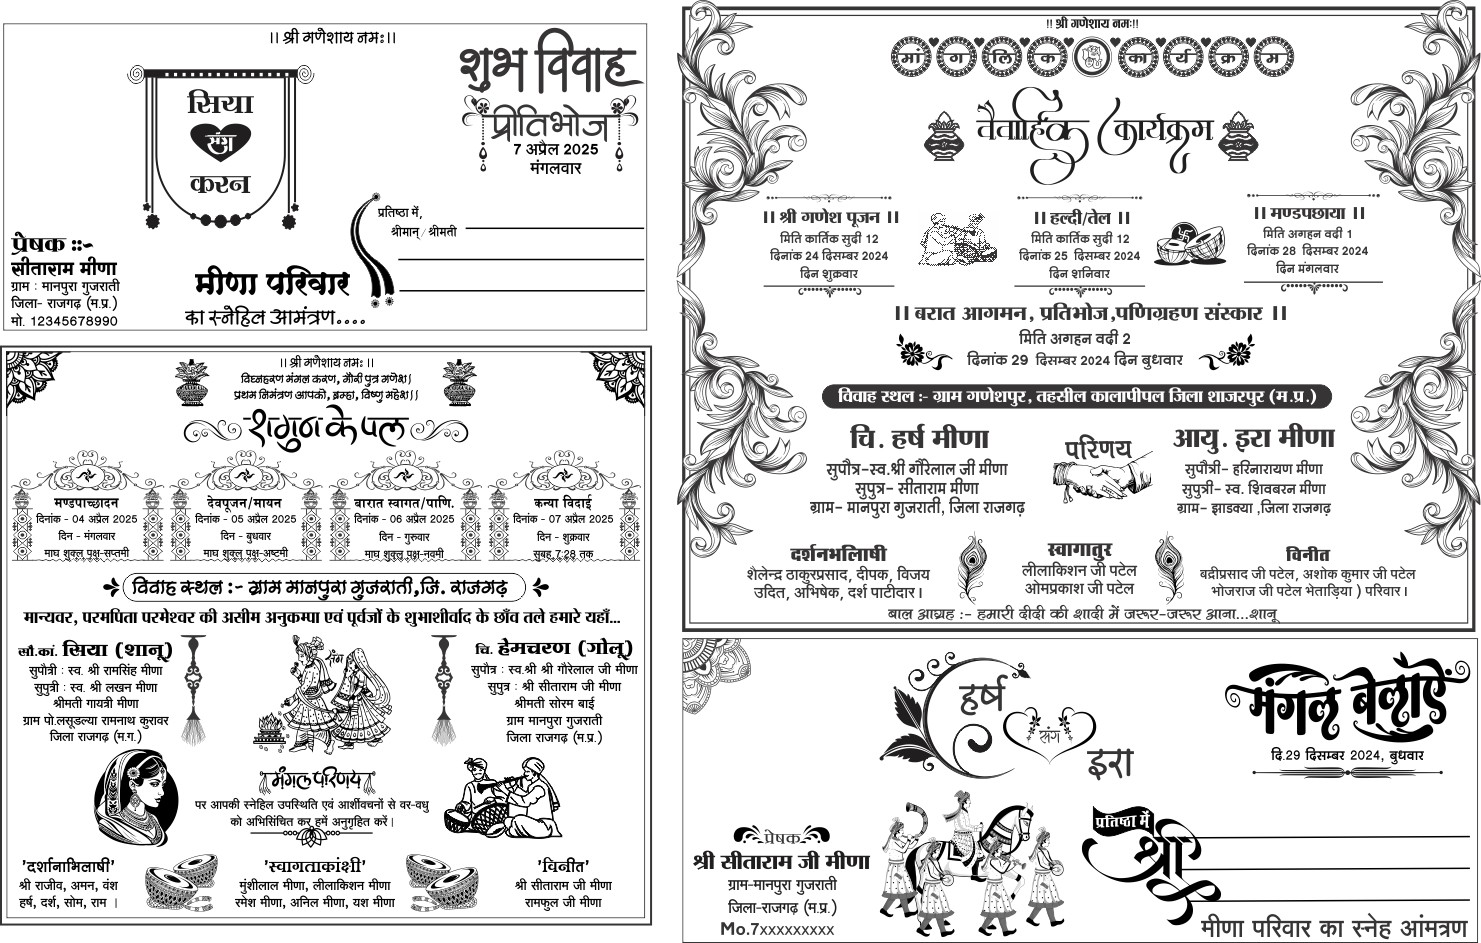 ।। श्री गणेशाय नमः।।
सिया
संग
करन
शुभ विवाह
प्रीतिभोज
7 अप्रैल 2025
मंगलवार
प्रतिष्ठा में,
श्रीमान् / श्रीमती
प्रेषक ::-
सीताराम मीणा
ग्राम : मानपुरा गुजराती
जिला- राजगढ़ (म.प्र.)
मो. 12345678990
मीणा परिवार
का स्नेहिल आमंत्रण....
।। श्री गणेशाय नमः ।।
विघ्नहरण मंगल करण, गौरी पुत्र गणेश।
प्रथम निमंत्रण आपको, ब्रम्हा, विष्णु महेश।।
शगुन के पल
मण्डपाच्छादन
दिनांक - 04 अप्रैल 2025
दिन - मंगलवार
माघ शुक्ल पक्ष-सप्तमी
देवपूजन/मायन
दिनांक - 05 अप्रैल 2025
दिन - बुधवार
माघ शुक्ल पक्ष-अष्टमी
बारात स्वागत/पाणि.
दिनांक - 06 अप्रैल 2025
दिन - गुरुवार
माघ शुक्ल पक्ष-नवमी
कन्या विदाई
दिनांक - 07 अप्रैल 2025
दिन - शुक्रवार
सुबह 7:28 तक
विवाह स्थल :- ग्राम मानपुरा गुजराती,जि. राजगढ़
मान्यवर, परमपिता परमेश्वर की असीम अनुकम्पा एवं पूर्वजों के शुभाशीर्वाद के छाँव तले हमारे यहाँ...
सौ.कां. सिया (शानू)
सुपौत्री : स्व. श्री रामसिंह मीणा
सुपुत्री : स्व. श्री लखन मीणा
श्रीमती गायत्री मीणा
ग्राम पो.लसूडल्या रामनाथ कुरावर
जिला राजगढ़ (म.ग.)
संग
चि. हेमचरण (गोलू)
सुपौत्र : स्व.श्री श्री गौरेलाल जी मीणा
सुपुत्र : श्री सीताराम जी मीणा
श्रीमती सोरम बाई
ग्राम मानपुरा गुजराती
जिला राजगढ़ (म.प्र.)
मंगल परिणय
पर आपकी स्नेहिल उपस्थिति एवं आर्शीवचनों से वर-वधु
को अभिसिंचित कर हमें अनुगृहित करें।
'दर्शानाभिलाषी'
श्री राजीव, अमन, वंश
हर्ष, दर्श, सोम, राम ।
'स्वागताकांक्षी'
मुंशीलाल मीणा, लीलाकिशन मीणा
रमेश मीणा, अनिल मीणा, यश मीणा
'विनीत'
श्री सीताराम जी मीणा
रामफुल जी मीणा
!! श्री गणेशाय नमः!!
मांगलिक कार्यक्रम
वैवाहिक कार्यक्रम
।। श्री गणेश पूजन ।।
मिति कार्तिक सुदी 12
दिनांक 24 दिसम्बर 2024
दिन शुक्रवार
।। हल्दी/तेल ।।
मिति कार्तिक सुदी 12
दिनांक 25 दिसम्बर 2024
दिन शनिवार
।। मण्डपछाया ।।
मिति अगहन वदी 1
दिनांक 28 दिसम्बर 2024
दिन मंगलवार
।। बरात आगमन, प्रतिभोज,पणिग्रहण संस्कार ।।
मिति अगहन वदी 2
दिनांक 29 दिसम्बर 2024 दिन बुधवार
विवाह स्थल :- ग्राम गणेशपुर, तहसील कालापीपल जिला शाजरपुर (म.प्र.)
चि. हर्ष मीणा
सुपौत्र-स्व.श्री गौरेलाल जी मीणा
सुपुत्र- सीताराम मीणा
ग्राम- मानपुरा गुजराती, जिला राजगढ़
परिणय
आयु. इरा मीणा
सुपौत्री- हरिनारायण मीणा
सुपुत्री- स्व. शिवबरन मीणा
ग्राम- झाडक्या ,जिला राजगढ़
दर्शनभलािषी
शैलेन्द्र ठाकुरप्रसाद, दीपक, विजय
उदित, अभिषेक, दर्श पाटीदार।
स्वागातुर
लीलाकिशन जी पटेल
ओमप्रकाश जी पटेल
विनीत
बद्रीप्रसाद जी पटेल, अशोक कुमार जी पटेल
भोजराज जी पटेल भेताड़िया ) परिवार।
बाल आग्रह :- हमारी दीदी की शादी में जरूर-जरूर आना...शानू
हर्ष
संग
इरा
मंगल बेलाऐं
दि.29 दिसम्बर 2024, बुधवार
प्रेषक
श्री सीताराम जी मीणा
ग्राम-मानपुरा गुजराती
जिला-राजगढ़ (म.प्र.)
Mo.7xxxxxxxxx
प्रतिष्ठा में
श्री
मीणा परिवार का स्नेह आंमत्रण